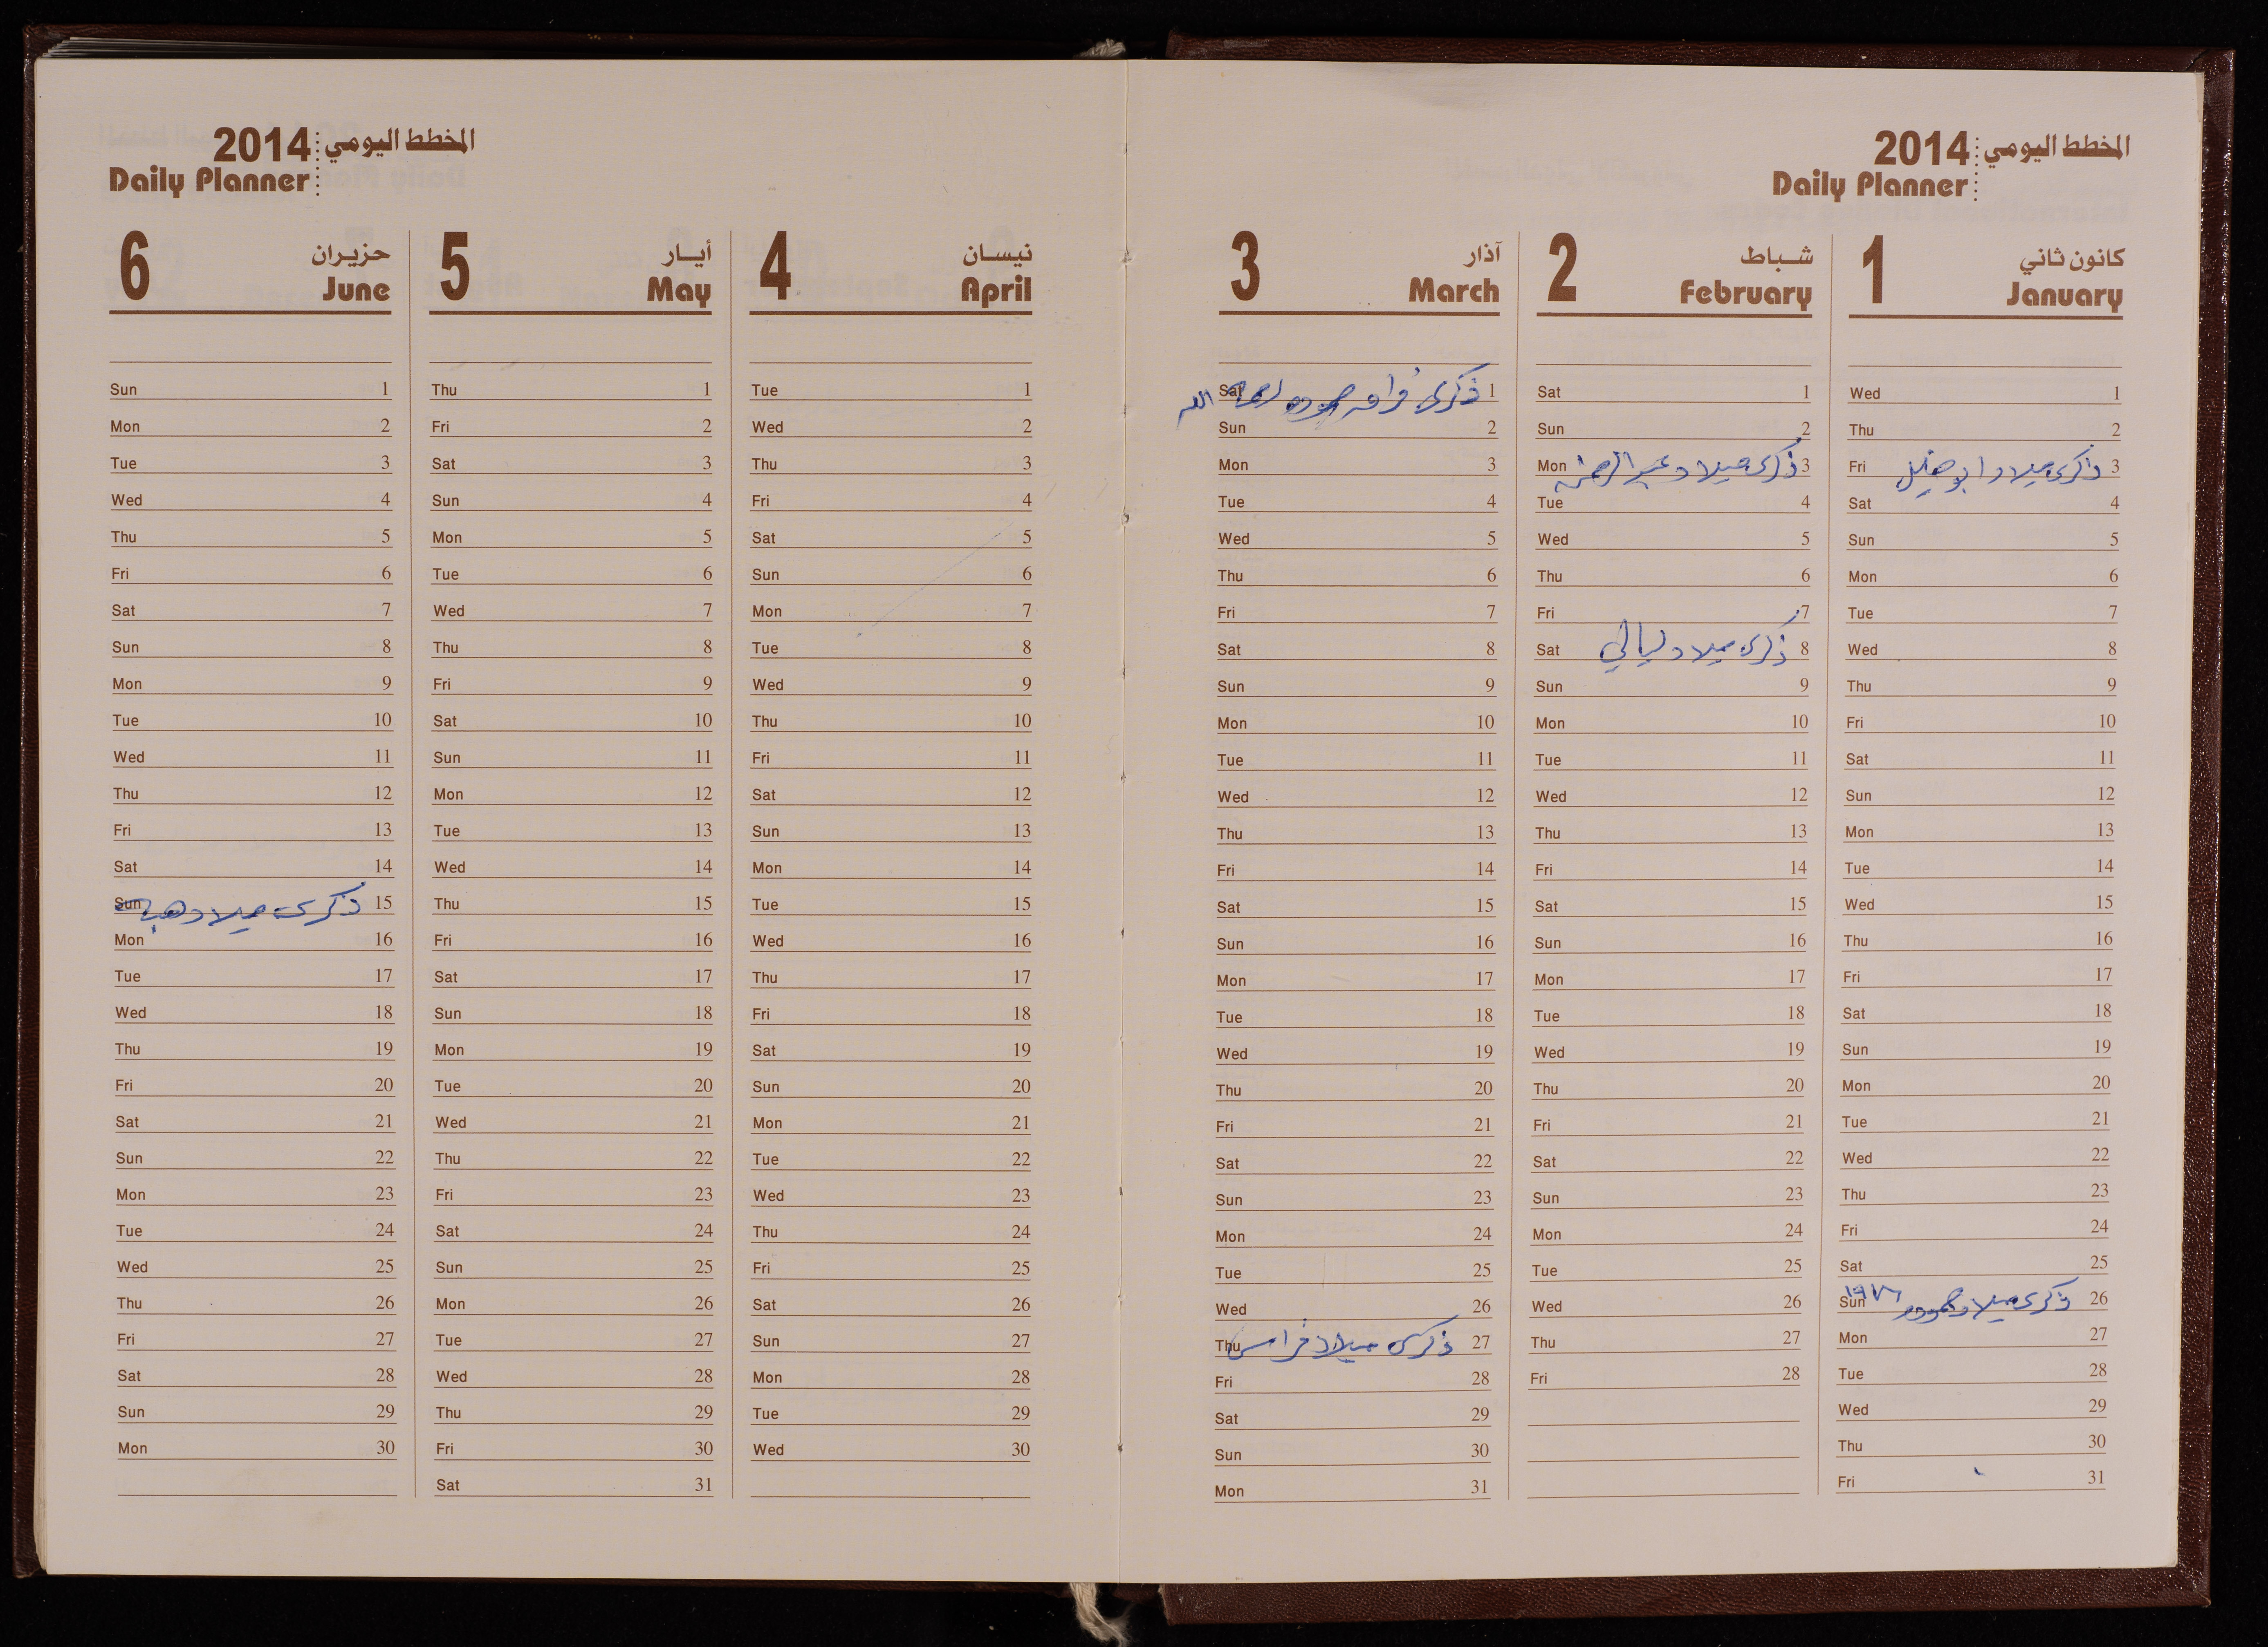 2014 المخطط اليومي
Daily Planner
1 كانون ثاني
January
Wed 1
Thu 2
Fri ذكرى ميلاد ابو 3
Sat 4
Sun 5
Mon 6
Tue 7
Wed 8
Thu 9
Fri 10
Sat 11
Sun 12
Mon 13
Tue 14
Wed 15
Thu 16
Fri 17
Sat 18
Sun 19
Mon 20
Tue 21
Wed 22
Thu 23
Fri 24
Sat 25
Sun ذكرى ميلاد ١٩٧٦ 26
Mon 27
Tue 28
Wed 29
Thu 30
Fri 31
2 شباط
February
Sat 1
Sun 2
Mon ذكرى ميلاد عبد الرحمن 3
Tue 4
Wed 5
Thu 6
Fri 7
Sat ذكرى ميلاد ليالي 8
Sun 9
Mon 10
Tue 11
Wed 12
Thu 13
Fri 14
Sat 15
Sun 16
Mon 17
Tue 18
Wed 19
Thu 20
Fri 21
Sat 22
Sun 23
Mon 24
Tue 25
Wed 26
Thu 27
Fri 28
3 آذار
March
Sat ذكرى فراق رحمه الله 1
Sun 2
Mon 3
Tue 4
Wed 5
Thu 6
Fri 7
Sat 8
Sun 9
Mon 10
Tue 11
Wed 12
Thu 13
Fri 14
Sat 15
Sun 16
Mon 17
Tue 18
Wed 19
Thu 20
Fri 21
Sat 22
Sun 23
Mon 24
Tue 25
Wed 26
Thu ذكرى ميلاد فراس 27
Fri 28
Sat 29
Sun 30
Mon 31
2014 المخطط اليومي
Daily Planner
4 نيسان
April
Tue 1
Wed 2
Thu 3
Fri 4
Sat 5
Sun 6
Mon 7
Tue 8
Wed 9
Thu 10
Fri 11
Sat 12
Sun 13
Mon 14
Tue 15
Wed 16
Thu 17
Fri 18
Sat 19
Sun 20
Mon 21
Tue 22
Wed 23
Thu 24
Fri 25
Sat 26
Sun 27
Mon 28
Tue 29
Wed 30
5 أيار
May
Thu 1
Fri 2
Sat 3
Sun 4
Mon 5
Tue 6
Wed 7
Thu 8
Fri 9
Sat 10
Sun 11
Mon 12
Tue 13
Wed 14
Thu 15
Fri 16
Sat 17
Sun 18
Mon 19
Tue 20
Wed 21
Thu 22
Fri 23
Sat 24
Sun 25
Mon 26
Tue 27
Wed 28
Thu 29
Fri 30
Sat 31
6 حزيران
June
Sun 1
Mon 2
Tue 3
Wed 4
Thu 5
Fri 6
Sat 7
Sun 8
Mon 9
Tue 10
Wed 11
Thu 12
Fri 13
Sat 14
Sun ذكرى ميلاد هبة 15
Mon 16
Tue 17
Wed 18
Thu 19
Fri 20
Sat 21
Sun 22
Mon 23
Tue 24
Wed 25
Thu 26
Fri 27
Sat 28
Sun 29
Mon 30